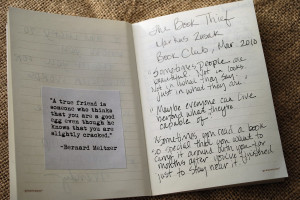 "A true friend is
someone who thinks
that you are a good
egg even though he
knows that you are
slightly cracked."
-Bernard Meltzer
The Book Thief
Markus Zusak
Book Club, Mar 2010
"Sometimes people are
beautiful. Not in looks.
Not in what they say.
Just in what they are."
"Maybe everyone can live
beyond what they're
capable of."
Sometimes you read a book
so special that you want to
carry it around with you for
months after you've finished
just to stay near it.